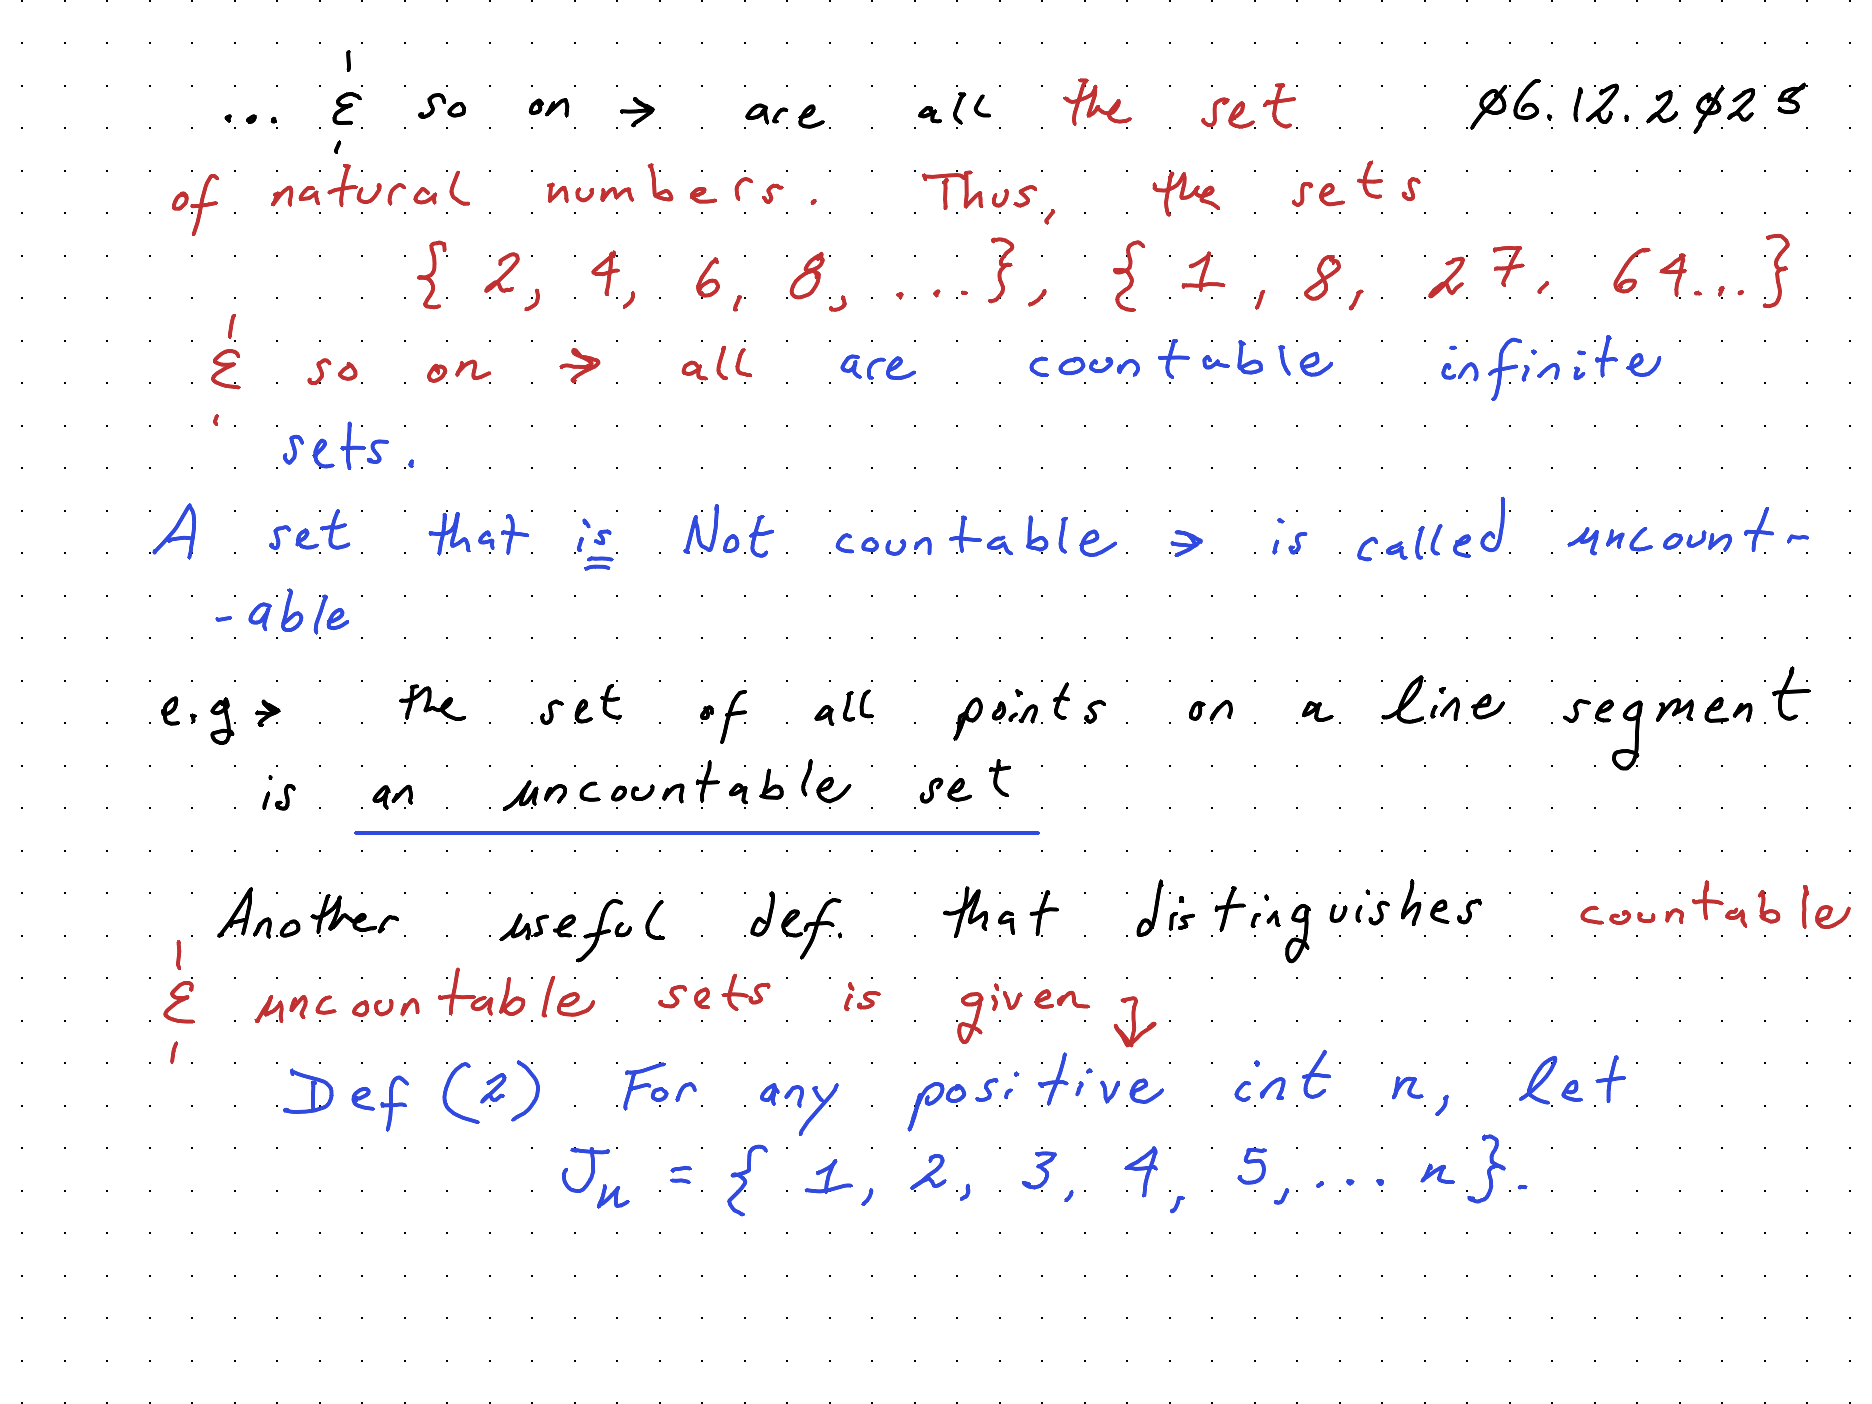 ... & so on → are all the set 06.12.2025
of natural numbers. Thus, the sets
{ 2, 4, 6, 8, ... }, { 1, 8, 27, 64... }
& so on → all are countable infinite
sets.
A set that is Not countable → is called uncount-
-able
e.g → the set of all points on a line segment
is an uncountable set
Another useful def. that distinguishes countable
& uncountable sets is given ↓
Def (2) For any positive int n, let
Jn = { 1, 2, 3, 4, 5, ... n }.